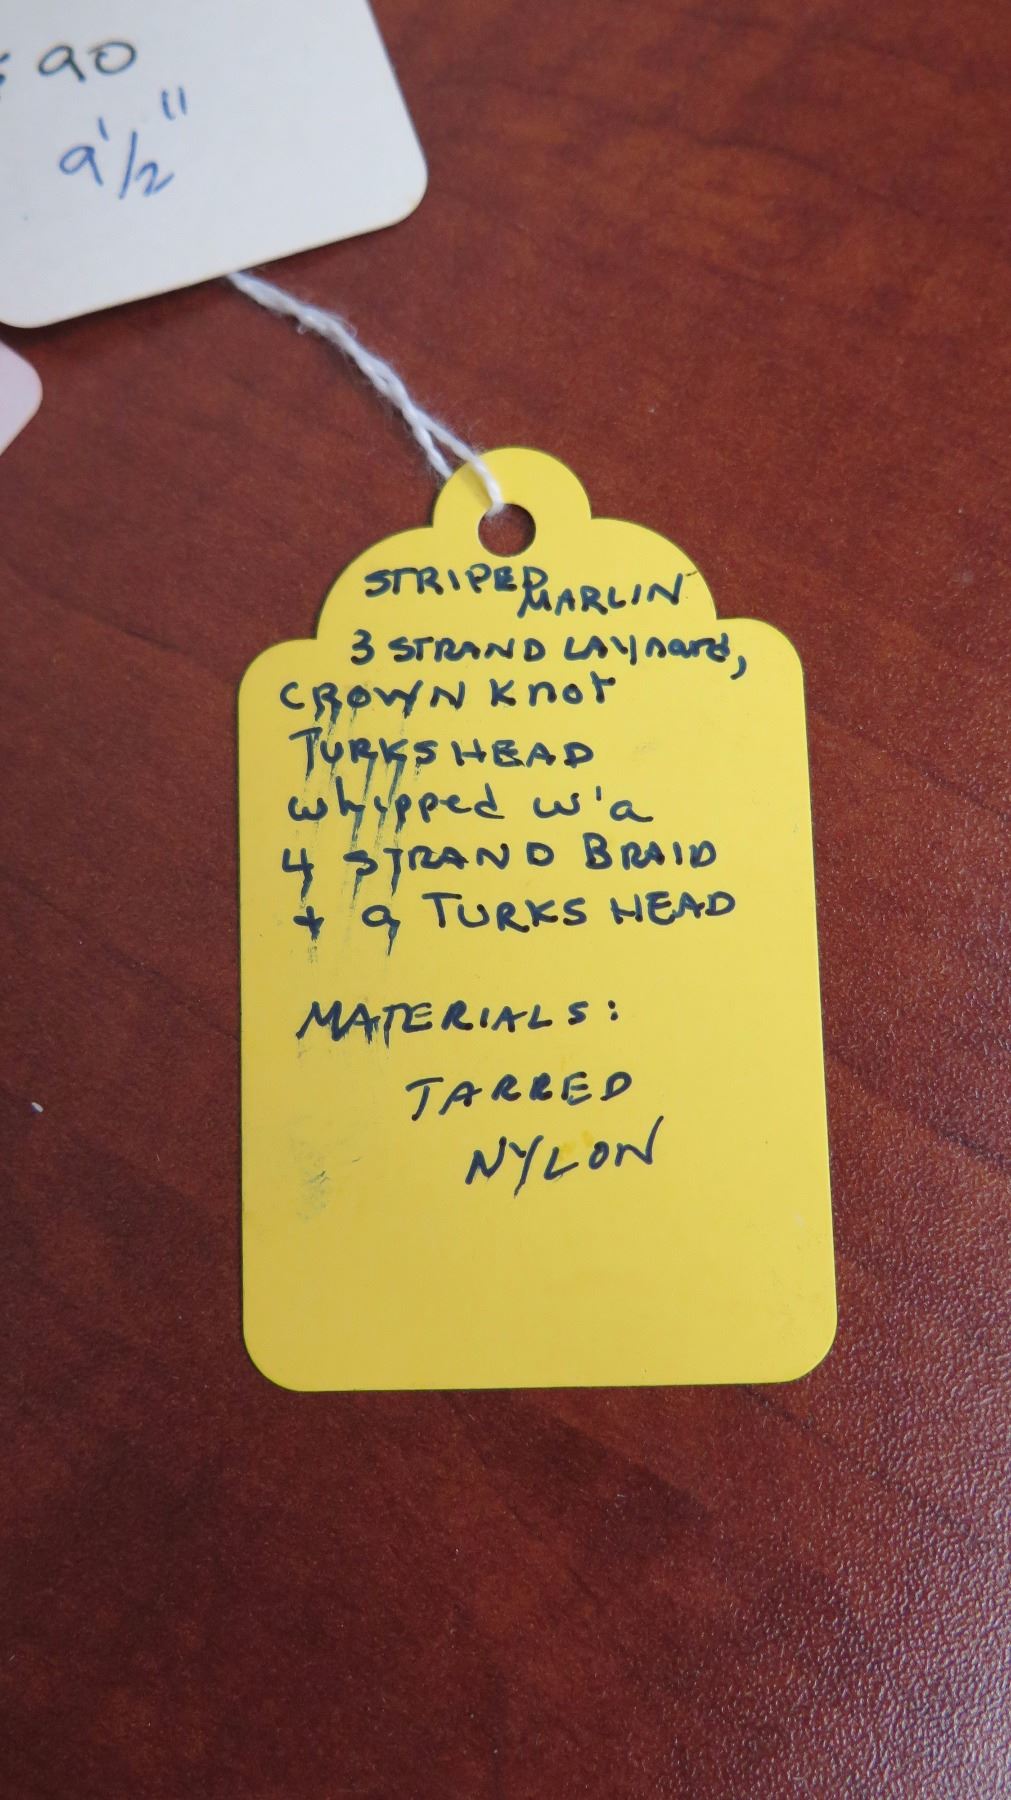 90
9 1/2"
STRIPED MARLIN
3 STRAND LAYNARD,
CROWN KNOT
TURKS HEAD
whipped w'a
4 STRAND BRAID
+ a TURKS HEAD
MATERIALS:
TARRED
NYLON